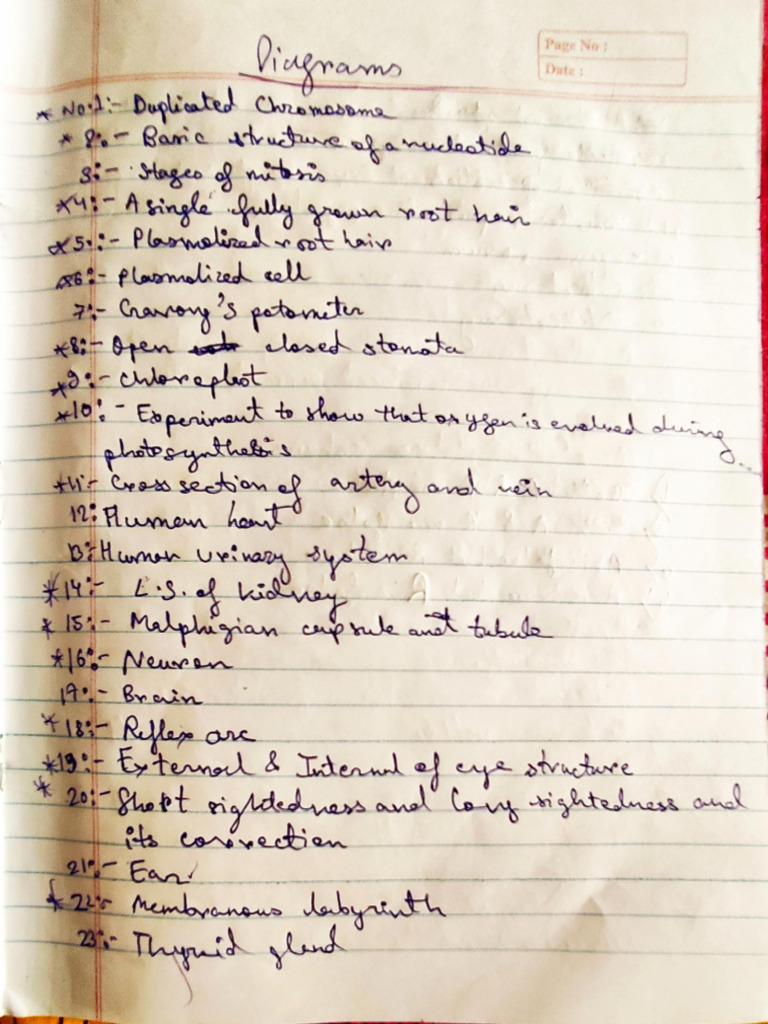 Page No :
Date :
Diagrams
* No:1:- Duplicated Chromosome
* 2:- Basic structure of a nucleotide
3:- Stages of mitosis
*4:- A single fully grown root hair
*5:- Plasmolized root hair
*6:- Plasmolized cell
7:- Ganong's potometer
*8:- Open closed stomata
*9:- Chloroplast
*10:- Experiment to show that oxygen is evolved during
photosynthesis
*11:- Cross section of artery and vein
12: Human heart
13:- Human urinary system
*14:- L.S. of kidney
* 15:- Malphigian capsule and tubule
*16:- Neuron
17:- Brain
*18:- Reflex arc
*19:- External & Internal of eye structure
* 20:- Short sightedness and Long sightedness and
its correction
21:- Ear
* 22:- Membranous labyrinth
23:- Thyroid gland